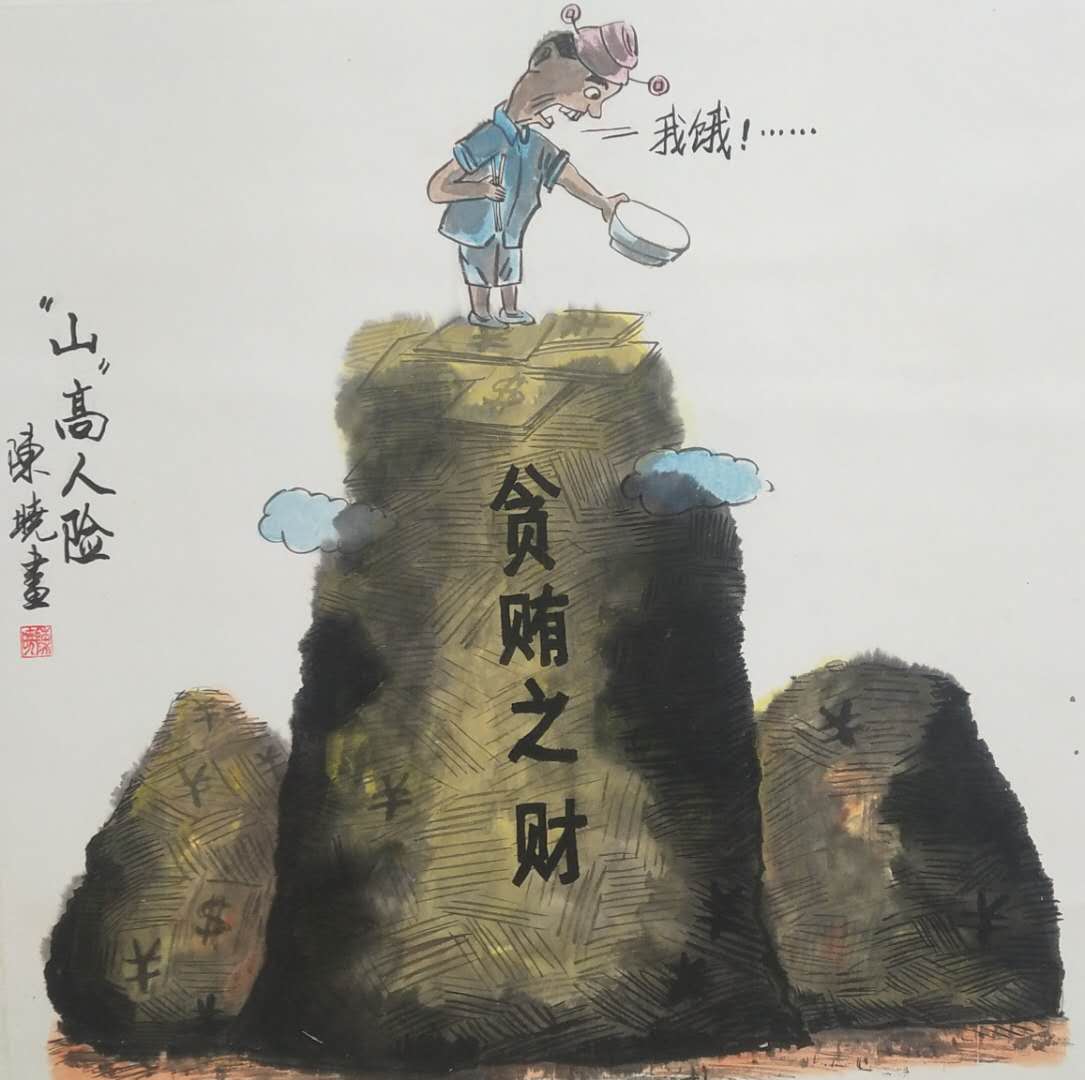 我饿！……
“山”高人险
陳曉畫
贪贿之财
¥
¥
$
¥
¥
¥
¥
$
¥
¥
¥
¥
¥